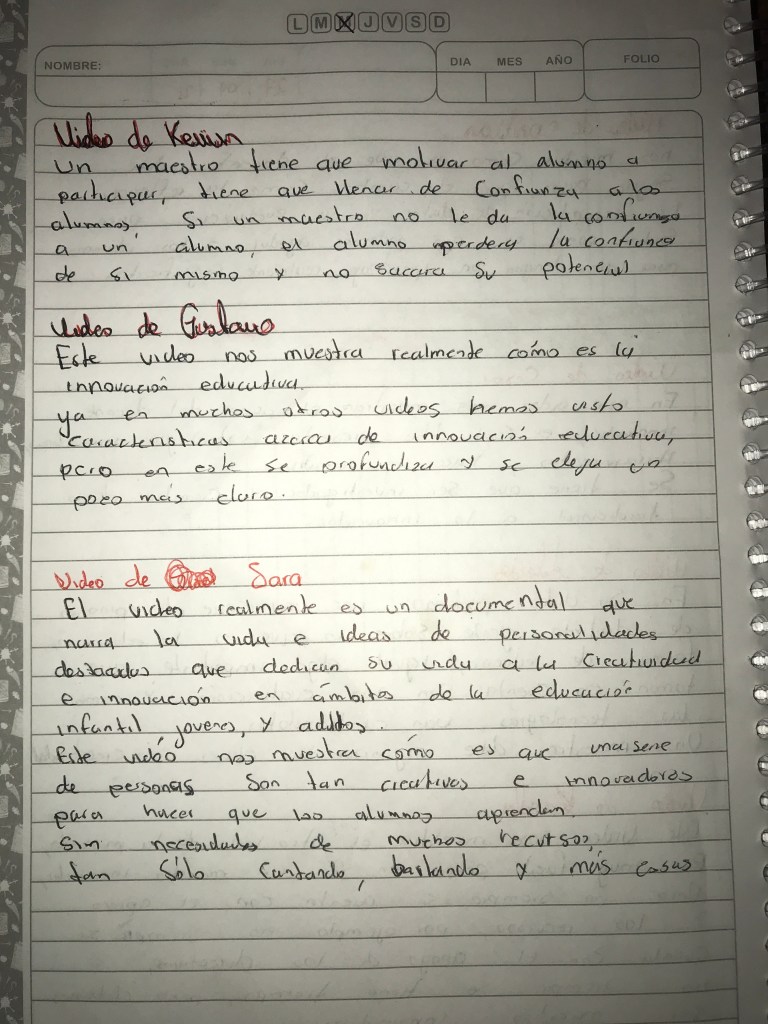 L M X J V S D
NOMBRE:
DIA MES AÑO
FOLIO
Video de Kevin
Un maestro tiene que motivar al alumno a
participar, tiene que llenar de Confianza a los
alumnos, Si un maestro no le da la confianza
a un alumno, el alumno perdera la confianza
de si mismo y no sacara su potencial
Video de Gustavo
Este video nos muestra realmente cómo es la
innovación educativa.
ya en muchos otros videos hemos visto
características acerca de innovación educativa,
pero en este se profundiza y se deja un
poco más claro.
Video de Sara
El video realmente es un documental que
narra la vida e ideas de personalidades
destacadas que dedican su vida a la Creatividad
e innovación en ámbitos de la educación
infantil, jovenes, y adultos.
Este video nos muestra cómo es que una serie
de personas son tan creativas e innovadores
para hacer que los alumnos aprendan.
Sin necesidades de muchos recursos,
tan Sólo Cantando, bailando y más cosas